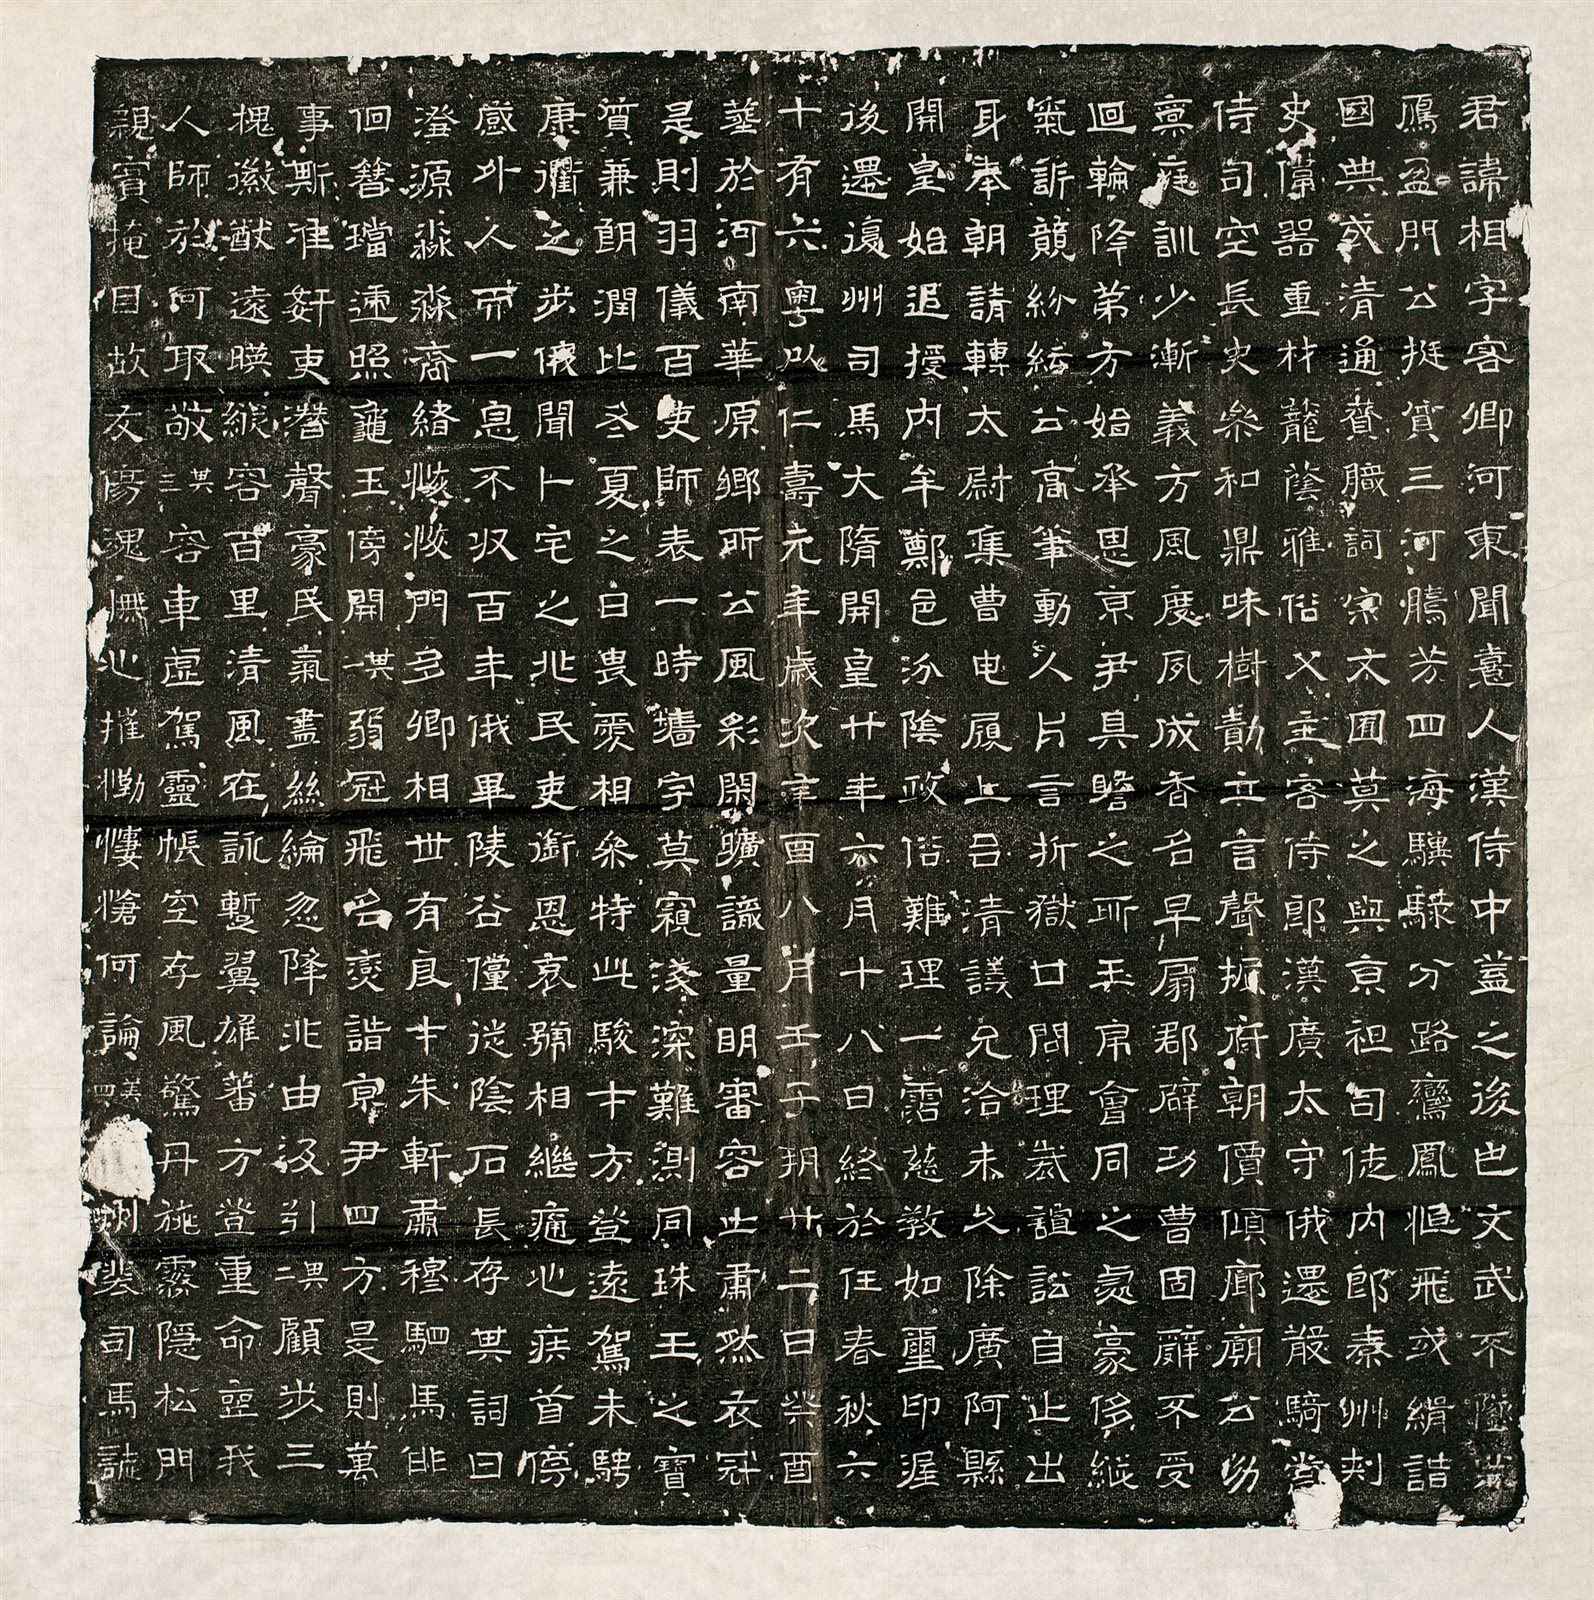 君諱相字客卿河東聞憙人漢侍中蓋之後也文武不墜羔
鴈盈門公挺質三河騰芳四海驥騄分路鸞鳳恒飛或緝誥
國典或清通贊職詞宗太囿莫之與京祖司徒內郎秦州刾
史偉器重材蘢蔭雅俗父主客侍郎漢廣太守俄還散騎常
侍司空長史叅和鼎味樹勣立言聲振府朝價傾廊廟公幼
稟庭訓少漸義方風度夙成香名早扇郡辟功曹固辭不受
迴輪降第方始承恩京尹具瞻之所玉帛會同之處豪侈縱
氣訴競紛紜公高筆動人片言折獄甘問理諠訟自止出
身奉朝請轉大尉集曹曳履上台清議允洽未久除廣阿縣
開皇始追授內牟鄭邑汾陰政俗難理一霑慈教如璽印渥
後還復州司馬大隋開皇廿年六月十八日終於任春秋六
十有六粵以仁壽元年歲次辛酉八月壬子朔廿二日癸酉
葬於河南華原鄉所公風彩閑曠識量明審容止肅然衣冠
是則羽儀百吏師表一時墻宇莫窺淺深難測同珠玉之寶
質兼朗潤比冬夏之日畏愛相叅特此駿才方登遠駕未騁
康衢之步俄聞卜宅之兆民吏銜恩哀號相繼痛心疾首停
感外人而一息不収百年俄畢陵谷儻徙陰石長存其詞曰
澄源淼淼裔緒悠悠門多卿相世有良才朱軒肅穆駟馬徘
佪簪璫遞照龜玉傍開其一弱冠飛名爰諧京尹四方是則萬
事斯准奸吏潛聲豪民氣盡絲綸忽降兆由汲引其二顧步三
槐徽猷遠暎縱容百里清風在詠蹔翼雄蕃方登重命奪我
人師於何取敬其三容車虛駕靈帳空存風驚丹旐霧隱松門
親賓掩目故友傷魂撫心摧慟悽愴何論其四州裴司馬誌